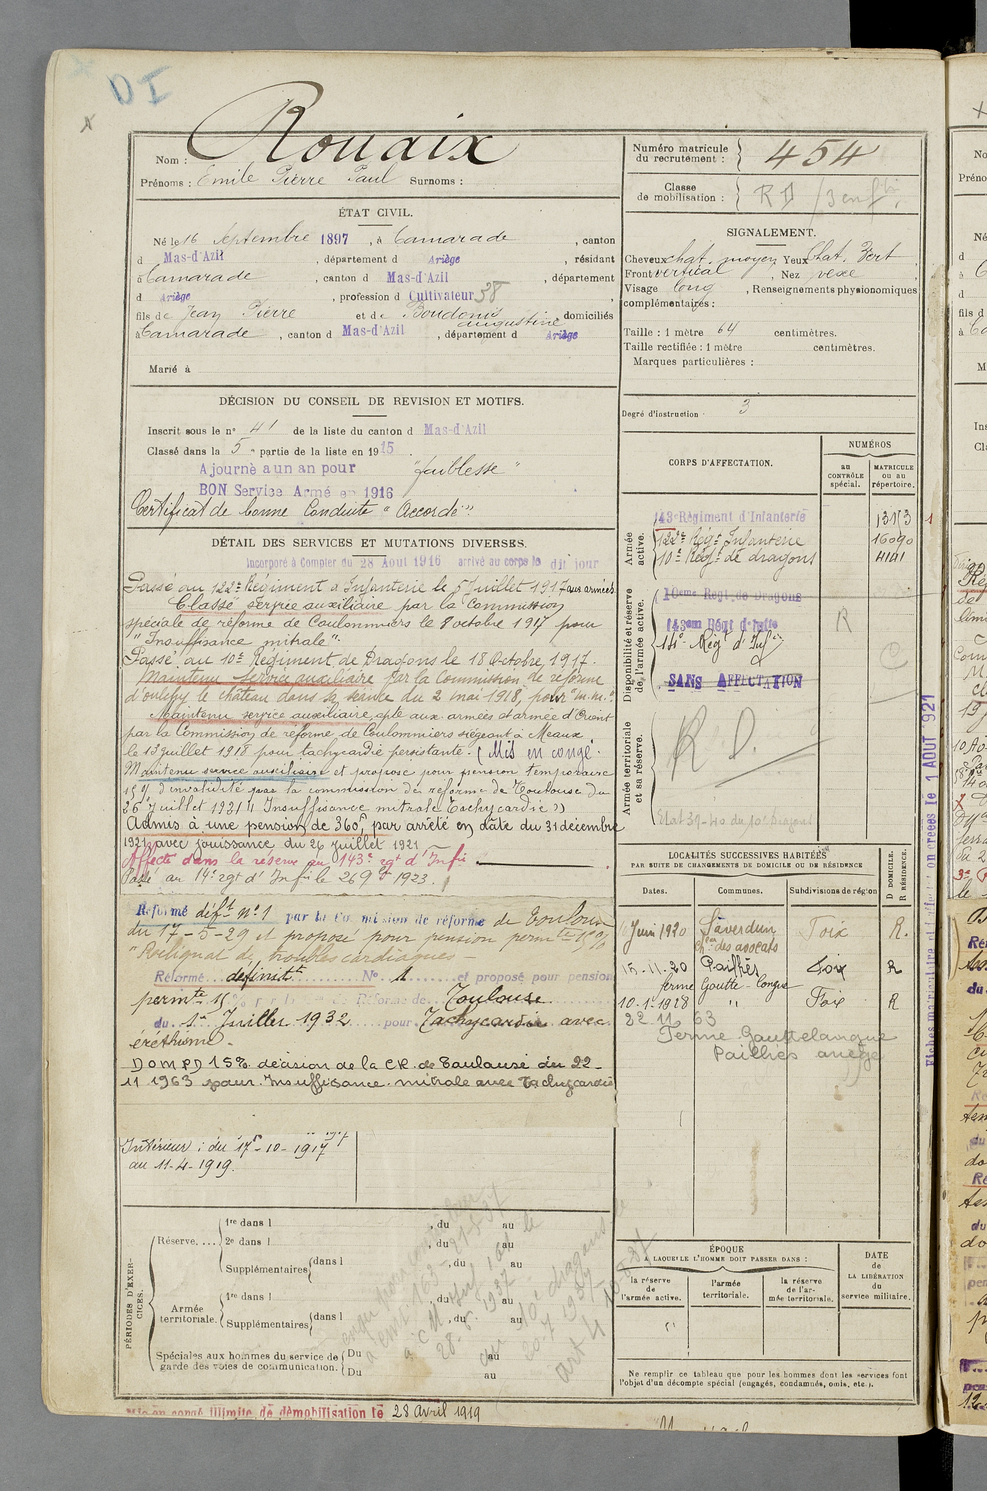 DI
Nom : Rouaix
Prénoms : Emile Pierre Paul Surnoms :
Numéro matricule du recrutement : 454
Classe de mobilisation : RD
ÉTAT CIVIL.
Né le 16 septembre 1897, à Camarade, canton
d Mas-d'Azil, département d Ariège, résidant
à Camarade, canton d Mas-d'Azil, département
d Ariège, profession d Cultivateur 38
fils de Jean Pierre et de Boudonis augustine, domiciliés
à Camarade, canton d Mas-d'Azil, département d Ariège
Marié à
SIGNALEMENT.
Cheveux chat. moyen Yeux chat. Vert
Front vertical, Nez vexe
Visage long, Renseignements physionomiques
complémentaires :
Taille : 1 mètre 64 centimètres.
Taille rectifiée : 1 mètre centimètres.
Marques particulières :
Degré d'instruction 3
DÉCISION DU CONSEIL DE REVISION ET MOTIFS.
Inscrit sous le n° 41 de la liste du canton d Mas-d'Azil
Classé dans la 5e partie de la liste en 1915.
Ajourné a un an pour "faiblesse"
BON Service Armé en 1916
Certificat de bonne Conduite "Accordé".
DÉTAIL DES SERVICES ET MUTATIONS DIVERSES.
Incorporé à Compter du 28 Aout 1916 arrivé au corps le dit jour
Passé au 122e Régiment d'Infanterie le 5 Juillet 1917 aux armées.
Classé service auxiliaire par la Commission
spéciale de réforme de Coulommiers le 8 octobre 1917 pour
"Insuffisance mitrale".
Passé au 10e Régiment de Dragons le 18 Octobre 1917.
Maintenu service auxiliaire par la Commission de réforme
d'oulchy le château dans sa séance du 2 mai 1918, pour "m.m."
Maintenu service auxiliaire apte aux armées et armée d'Orient
par la Commission de réforme de Coulommiers siégeant à Meaux
le 13 juillet 1918 pour tachycardie persistante. (Mis en congé.
Maintenu service auxiliaire et proposé pour pension temporaire
15% d'invalidité par la commission de réforme de Toulouse du
26 Juillet 1921 "Insuffisance mitrale Tachycardie"
Admis à une pension de 360f par arrêté en date du 31 décembre
1921 avec jouissance du 26 juillet 1921
Affecté dans la réserve au 143e rgt d'Infie
Passé au 14e rgt d'Infie le 26 9bre 1923.
Réformé déft n°1 par la Commission de réforme de Toulouse
du 17-5-29 et proposé pour pension permte 15%
"Reliquat de troubles cardiaques -
Réformé définitt No 1 et proposé pour pension
permte 15% par la Réforme de Toulouse
du 1er Juillet 1932 pour Tachycardie avec
éréthisme.
DOM PD 15% décision de la CR de Toulouse du 22-
11 1963 pour Insuffisance mitrale avec tachycardie
Intérieur : du 17-10-1917
au 11-4-1919.
CORPS D'AFFECTATION.
NUMÉROS
au CONTRÔLE spécial.
MATRICULE ou au répertoire.
Armée active.
143e Régiment d'Infanterie 13153
122e Régt Infanterie 16090
10e Régt de dragons 4141
Disponibilité et réserve de l'armée active.
10eme Régt de Dragons
143eme Régt d'Infie
14e Régt d'Infie
R
SANS AFFECTATION
Armée territoriale et sa réserve.
R.D.
Etat 39-40 du 10e Dragons
Fiches matriculaire et d'affectation créées le 1 AOUT 1921
LOCALITÉS SUCCESSIVES HABITÉES
PAR SUITE DE CHANGEMENTS DE DOMICILE OU DE RÉSIDENCE
Dates. Communes. Subdivisions de région D DOMICILE. R RÉSIDENCE.
Juin 1920 Saverdun Foix R.
des avocats
15.11.20 Pailhès Foix R
ferme Goutte-Longue
10-1-1928 " Foix R
22 11 63
Ferme Gouttelongue
Pailhès ariège
PÉRIODES D'EXERCICES.
Réserve....
1re dans l , du au
2e dans l , du au
Supplémentaires dans l , du au
Armée territoriale.
1re dans l , du au
Supplémentaires dans l , du au
Spéciales aux hommes du service de garde des voies de communication.
Du au
Du au
ÉPOQUE
À LAQUELLE L'HOMME DOIT PASSER DANS :
la réserve de l'armée active.
l'armée territoriale.
la réserve de l'armée territoriale.
DATE de LA LIBÉRATION du service militaire.
Ne remplir ce tableau que pour les hommes dont les services font
l'objet d'un décompte spécial (engagés, condamnés, omis, etc.).
Mis en congé illimité de démobilisation le 28 Avril 1919